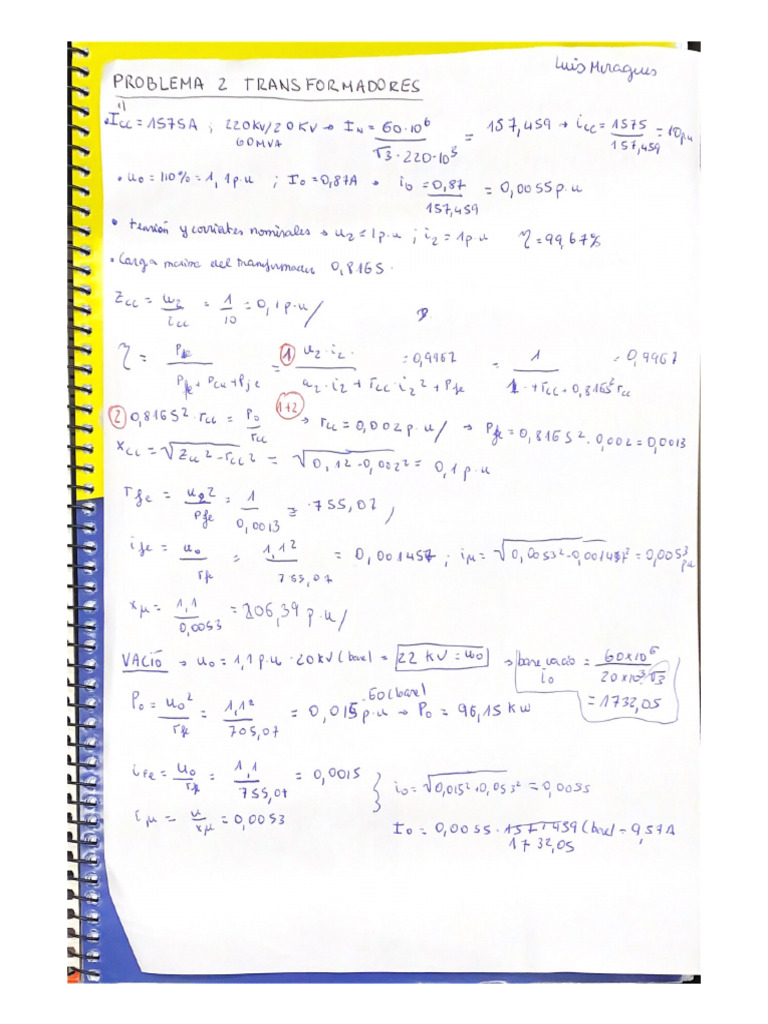 Luis Moragues
PROBLEMA 2 TRANSFORMADORES
1)
• Icc = 1575A ; 220KV/20KV → IN = 60·10⁶ / √3·220·10³ = 157,459 → icc = 1575 / 157,459 = 10pu
60MVA
• u0 = 110% = 1,1 p.u ; I0 = 0,87A → i0 = 0,87 / 157,459 = 0,0055 p.u
• tensión y corrientes nominales → u2 = 1 p.u ; i2 = 1 p.u η = 99,67%
• Carga máxima del transformador 0,8165.
Zcc = u2 / icc = 1 / 10 = 0,1 p.u/
η = Pfe / Pfe + Pcu + Pfe = ① u2·i2· / u2·i2 + rcc·i2² + Pfe = 0,9967 = 1 / 1 + rcc + 0,8165² rcc = 0,9967
② 0,8165²·rcc = P0 / rcc 1+2 → rcc = 0,002 p.u/ → Pfe = 0,8165²·0,002 = 0,0013
Xcc = √Zcc² - rcc² = √0,1² - 0,002² = 0,1 p.u
rfe = u2² / Pfe = 1 / 0,0013 = 755,07/
ife = u0 / rfe = 1,1² / 755,07 = 0,001457 ; iμ = √0,0053² - 0,001457² = 0,0053 p.u
xμ = 1,1 / 0,0053 = 206,39 p.u/
VACIO → u0 = 1,1 p.u · 20KV (base) = 22 KV = u0 → base vacio i0 = 60x10⁶ / 20x10³√3 = 1732,05
P0 = u0² / rfe = 1,1² / 705,07 = 0,016 p.u · 60(base) → P0 = 96,15 KW
iFe = u0 / rfe = 1,1 / 755,07 = 0,0015
i0 = √0,015² + 0,053² = 0,0055
iμ = u / xμ = 0,0053
I0 = 0,0055 · 157,459 (base) = 9,57A
1732,05